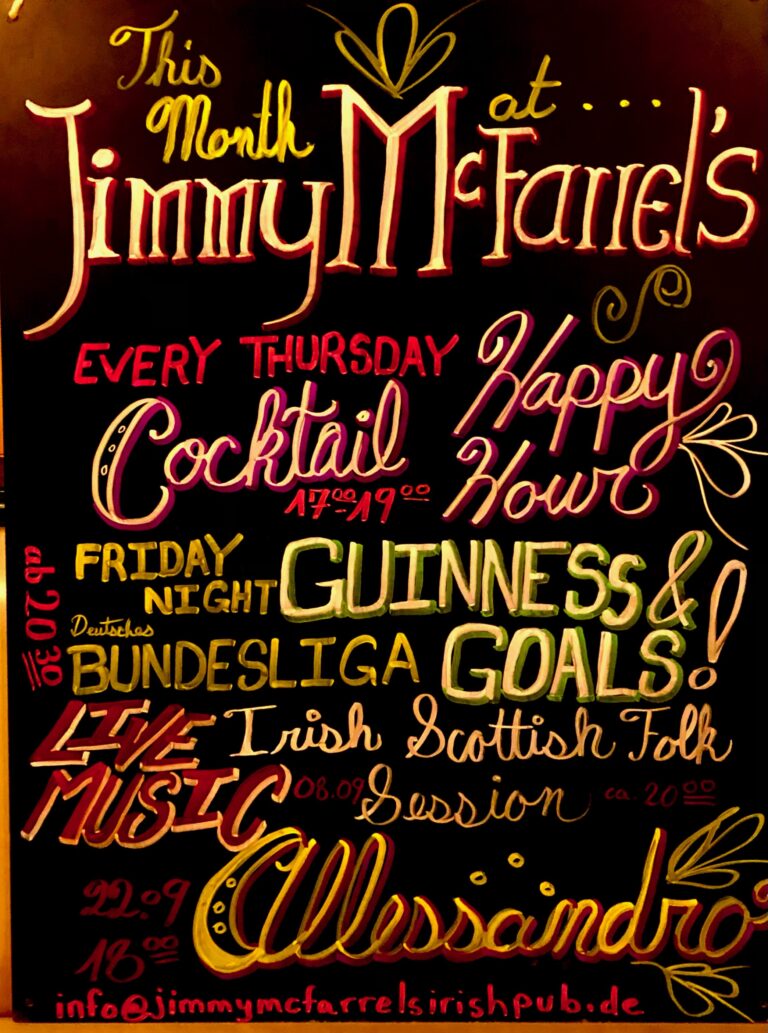 This
Month at ....
Jimmy McFarrel's
EVERY THURSDAY Happy
Cocktail Hour
17⁰⁰-19⁰⁰
ab 20³⁰
FRIDAY NIGHT GUINNESS &
Deutsches
BUNDESLIGA GOALS!
LIVE Irish Scottish Folk
MUSIC 08.09 Session ca. 20⁰⁰
22.09 Allessandro
18⁰⁰
info@jimmymcfarrelsirishpub.de